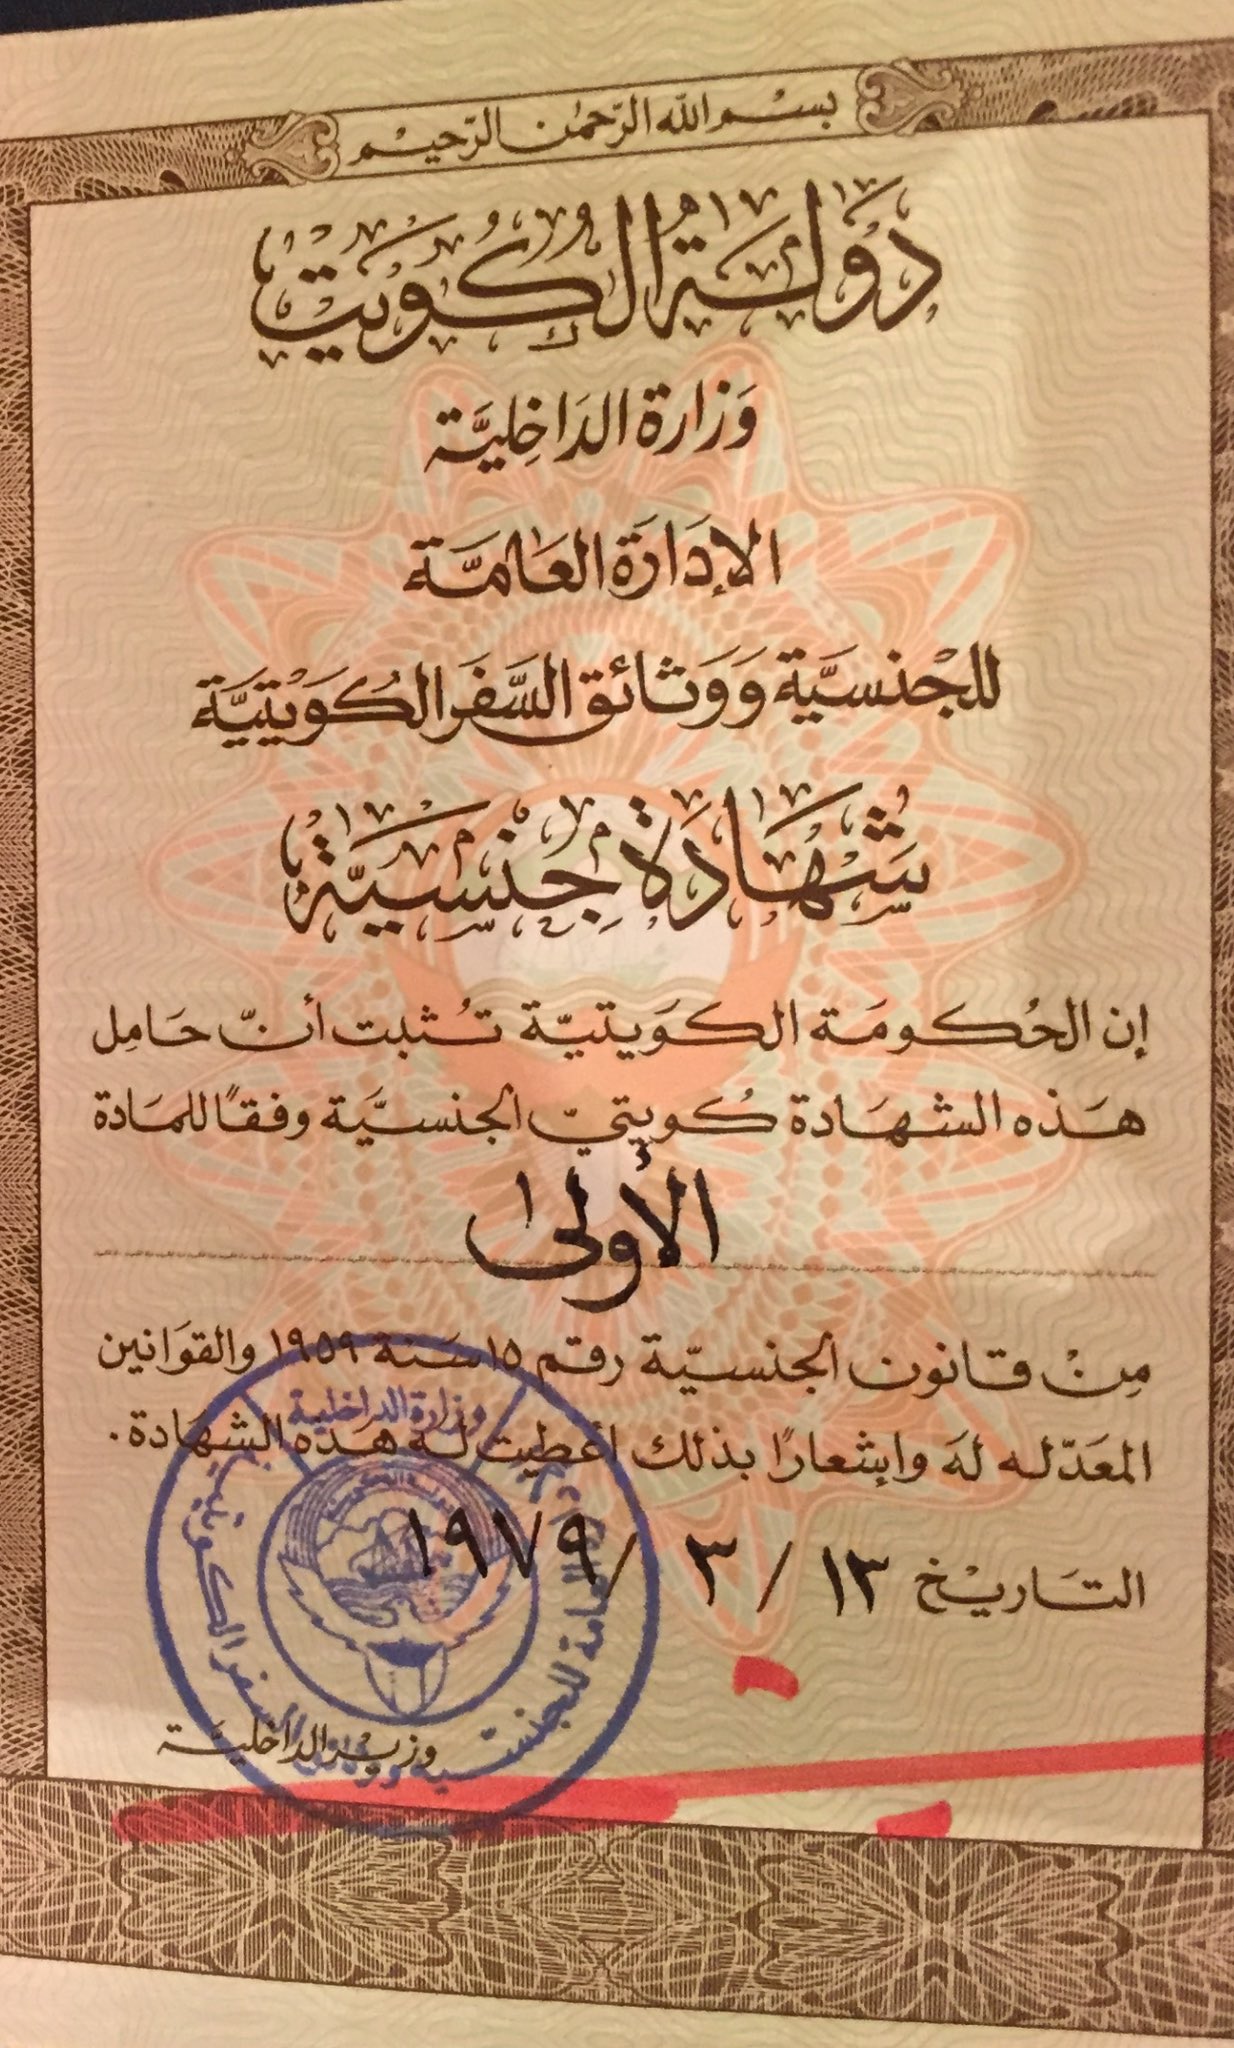 بسم الله الرحمن الرحيم
دَولة الكويت
وَزارة الدَاخِليَّة
الإدَارَة العَامَّة
للجْنسيَّة وَوَثائق السَّفَر الكُوَيْتيَّة
شَهَادَة جِنسيَّة
إن الحُكومَة الكوَيتيّة تُثبت أنّ حَامِل
هَذه الشهَادة كُويتيّ الجنسيَّة وفقاً للمَادة
الأولى
مِنْ قانون الجنسيّة رقم ١٥ سَنة ١٩٥٩ والقوَانين
المعَدّله لهَ وإشعارًا بذلك أعطيت له هَذه الشهَادة.
التَاريْخ ١٣ / ٣ / ١٩٧٩
وزارة الداخلية
الإدارة العامة للجنسية ووثائق السفر الكويتية
دولة الكويت
وَزير الداخليَّة